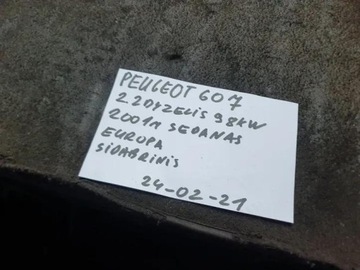 PEUGEOT 607
2 2DYZELIS 98KW
2001M SEDANAS
EUROPA
SIDABRINIS
24-02-21